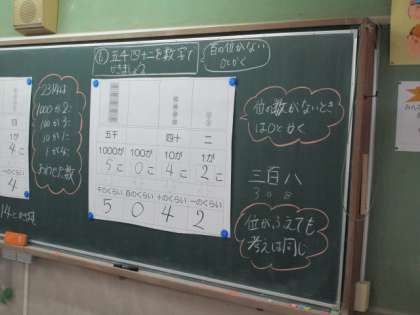 五千四十二を数字で
かきましょう
百の位がない
0とかく
2314は
1000が2こ
100が3こ
10が1こ
1が4こ
あわせた数
1が
4こ
4
五千
四十
二
1000が
100が
10が
1が
5こ
0こ
4こ
2こ
千のくらい
百のくらい
十のくらい
一のくらい
5
0
4
2
位の数がないとき
は0とかく
三百八
308
位がふえても
考えは同じ